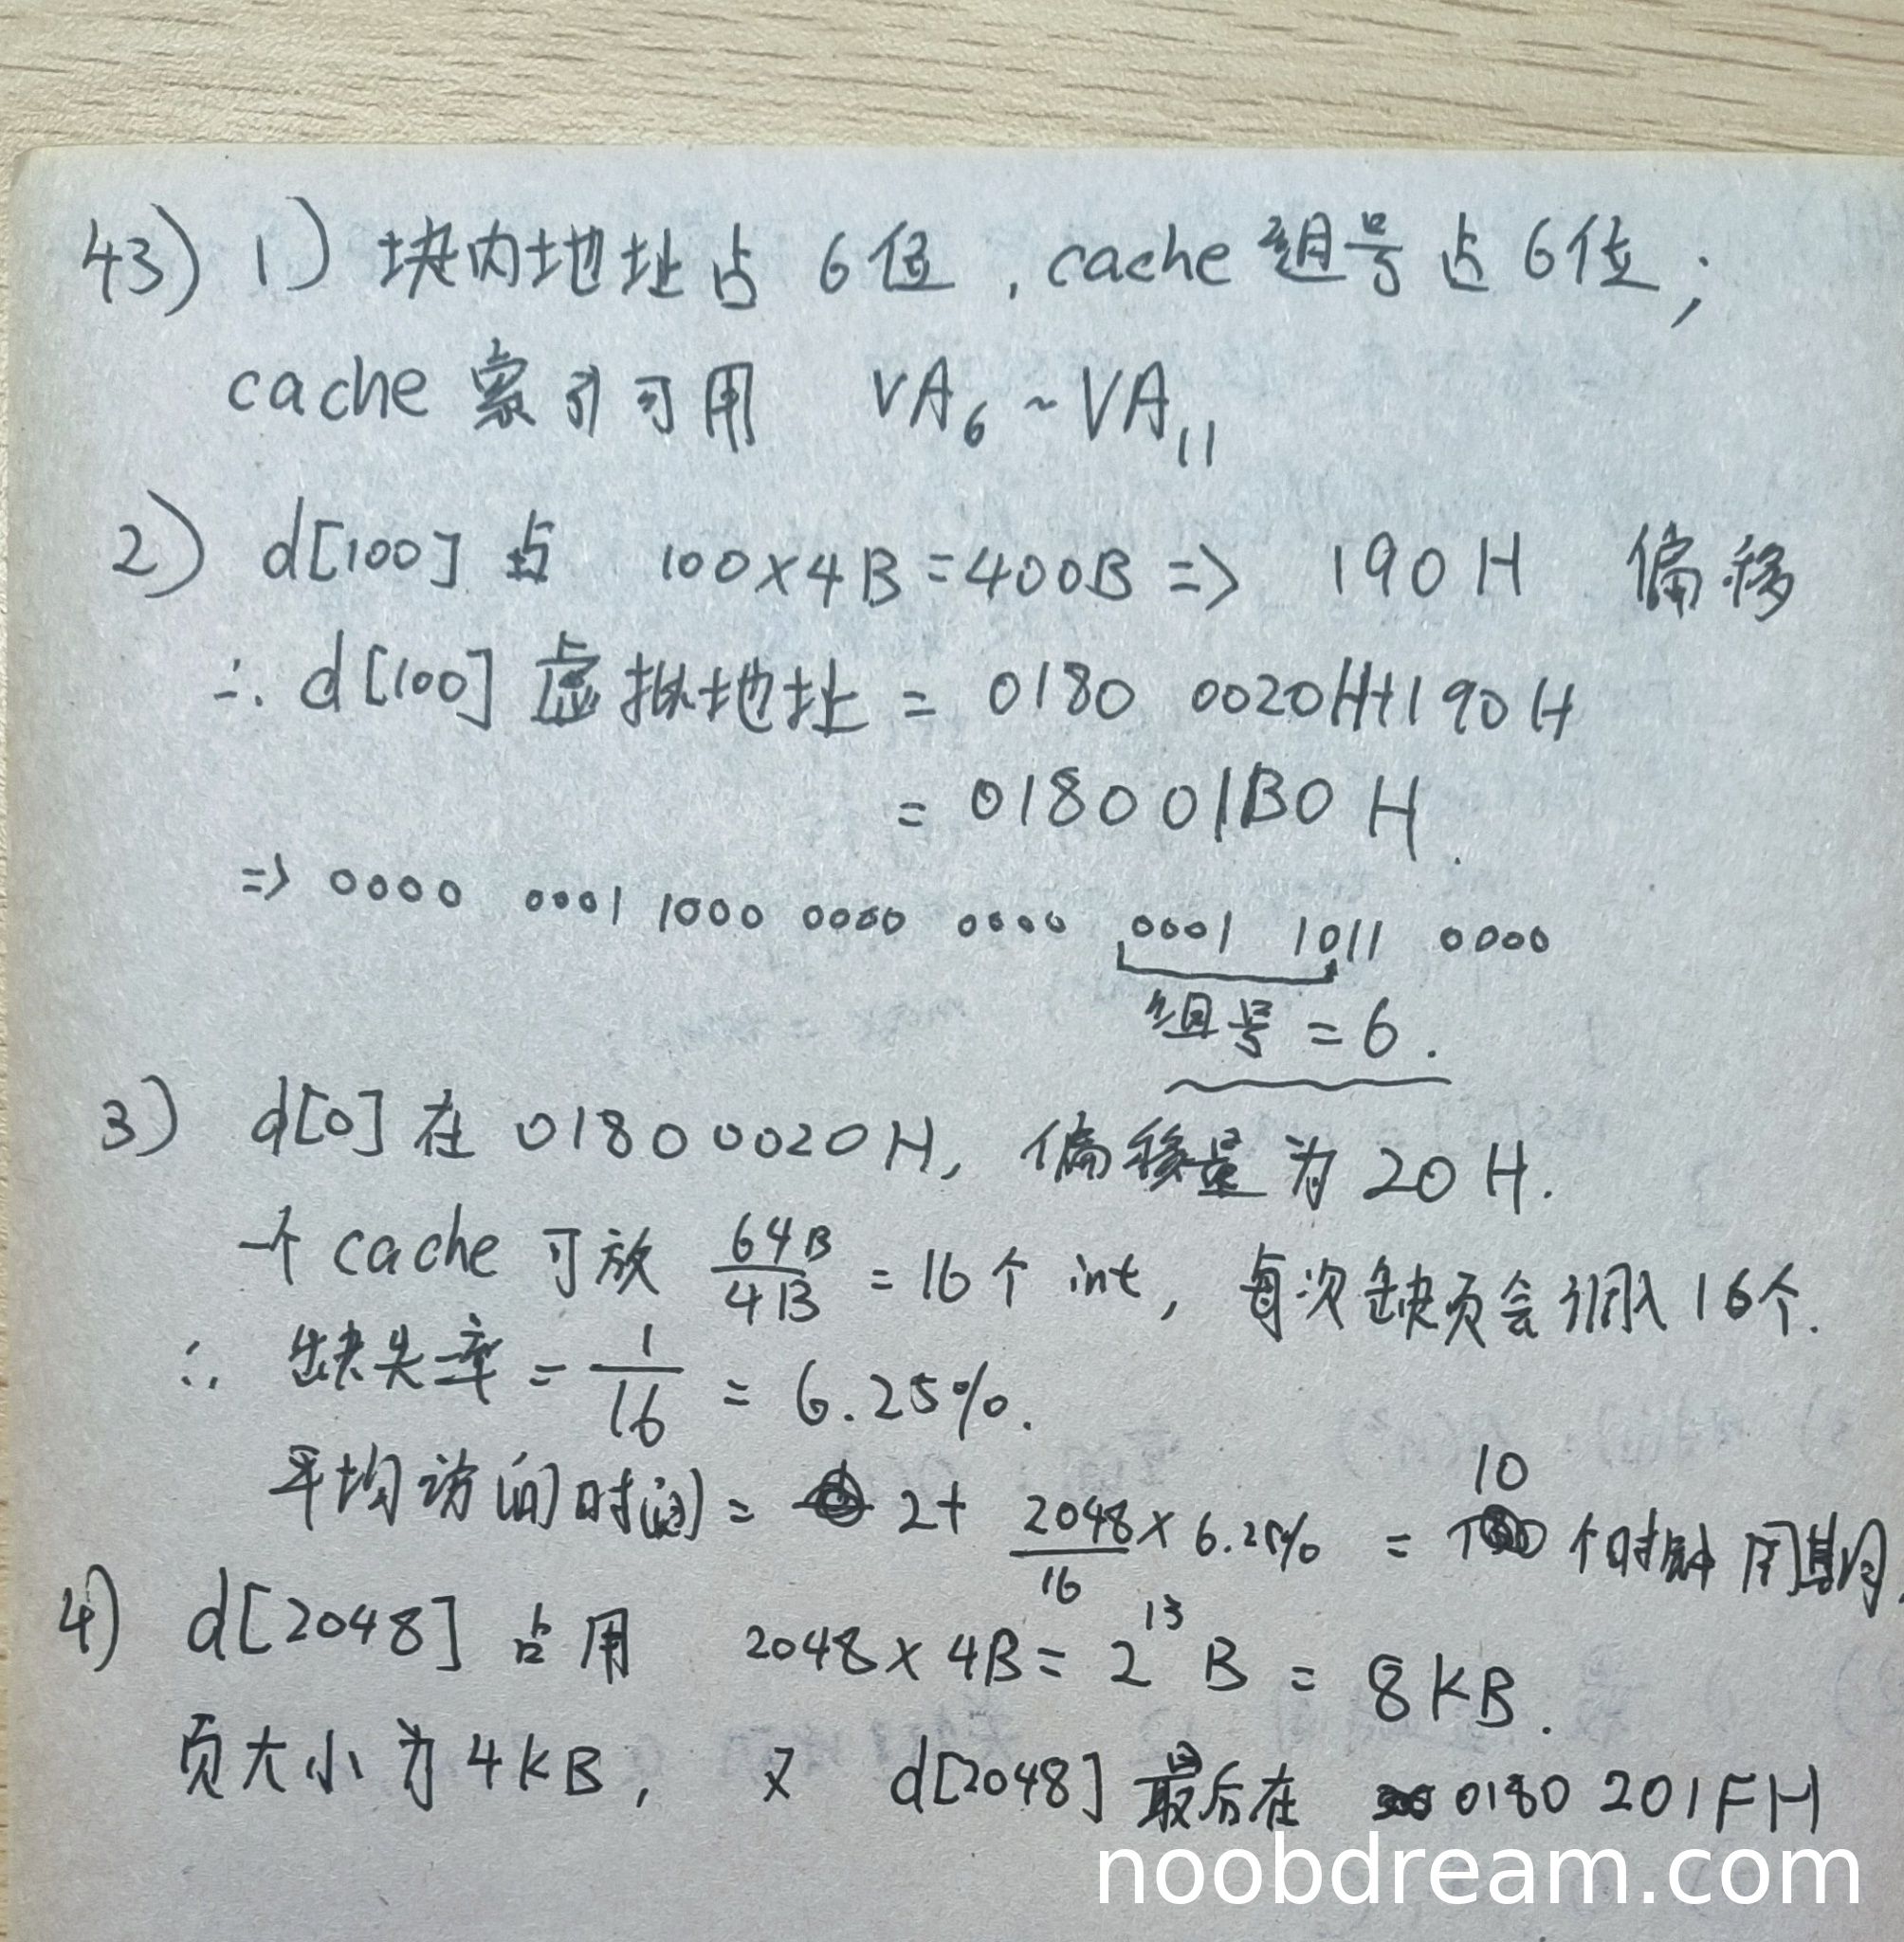 43) 1) 块内地址占 6位, cache 组号占6位;
cache 索引可用 VA₆ ~ VA₁₁
2) d[100] 占 100×4B=400B => 190H 偏移
∴ d[100] 虚拟地址 = 0180 0020H+190H
= 018001B0 H.
=> 0000 0001 1000 0000 0000 0001 1011 0000
组号 = 6.
3) d[0] 在 01800020H, 偏移量为 20H.
一个 cache 可放 64B/4B = 16个 int, 每次缺页会调入16个.
∴ 缺失率 = 1/16 = 6.25%.
平均访问时间 = 2+ 2048/16 × 6.25% = 10 个时钟周期.
4) d[2048] 占用 2048×4B= 2¹³ B = 8KB.
页大小为4KB, 又 d[2048] 最后在 0180 201FH
noobdream.com